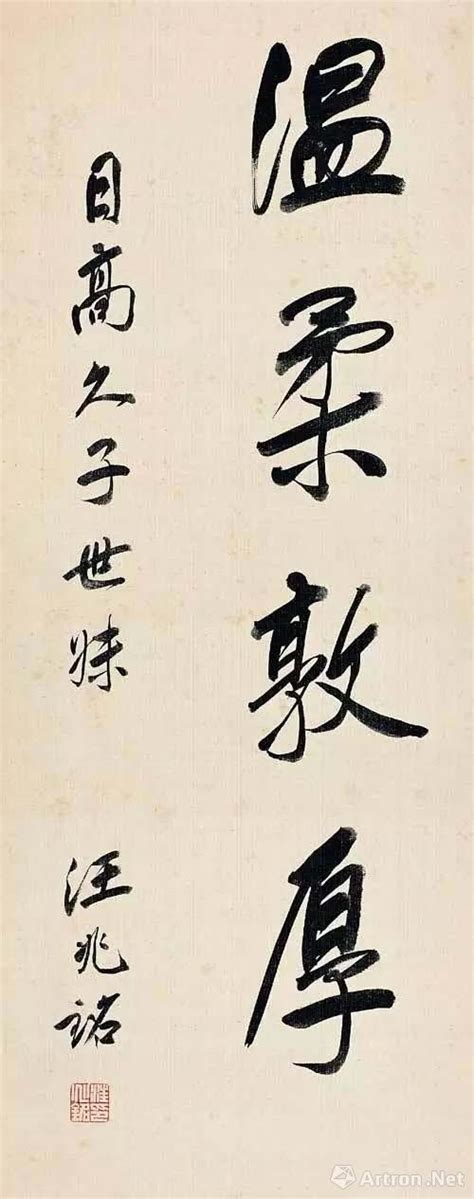 温柔敦厚
日高久子世妹
汪兆銘
汪兆銘
Artron.Net